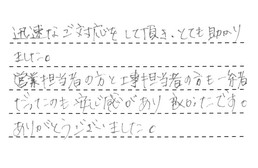 迅速なご対応をして頂き、とても助かり
ました。
営業担当者の方と工事担当者の方も一緒
だったのも安心感があり良かったです。
ありがとうございました。